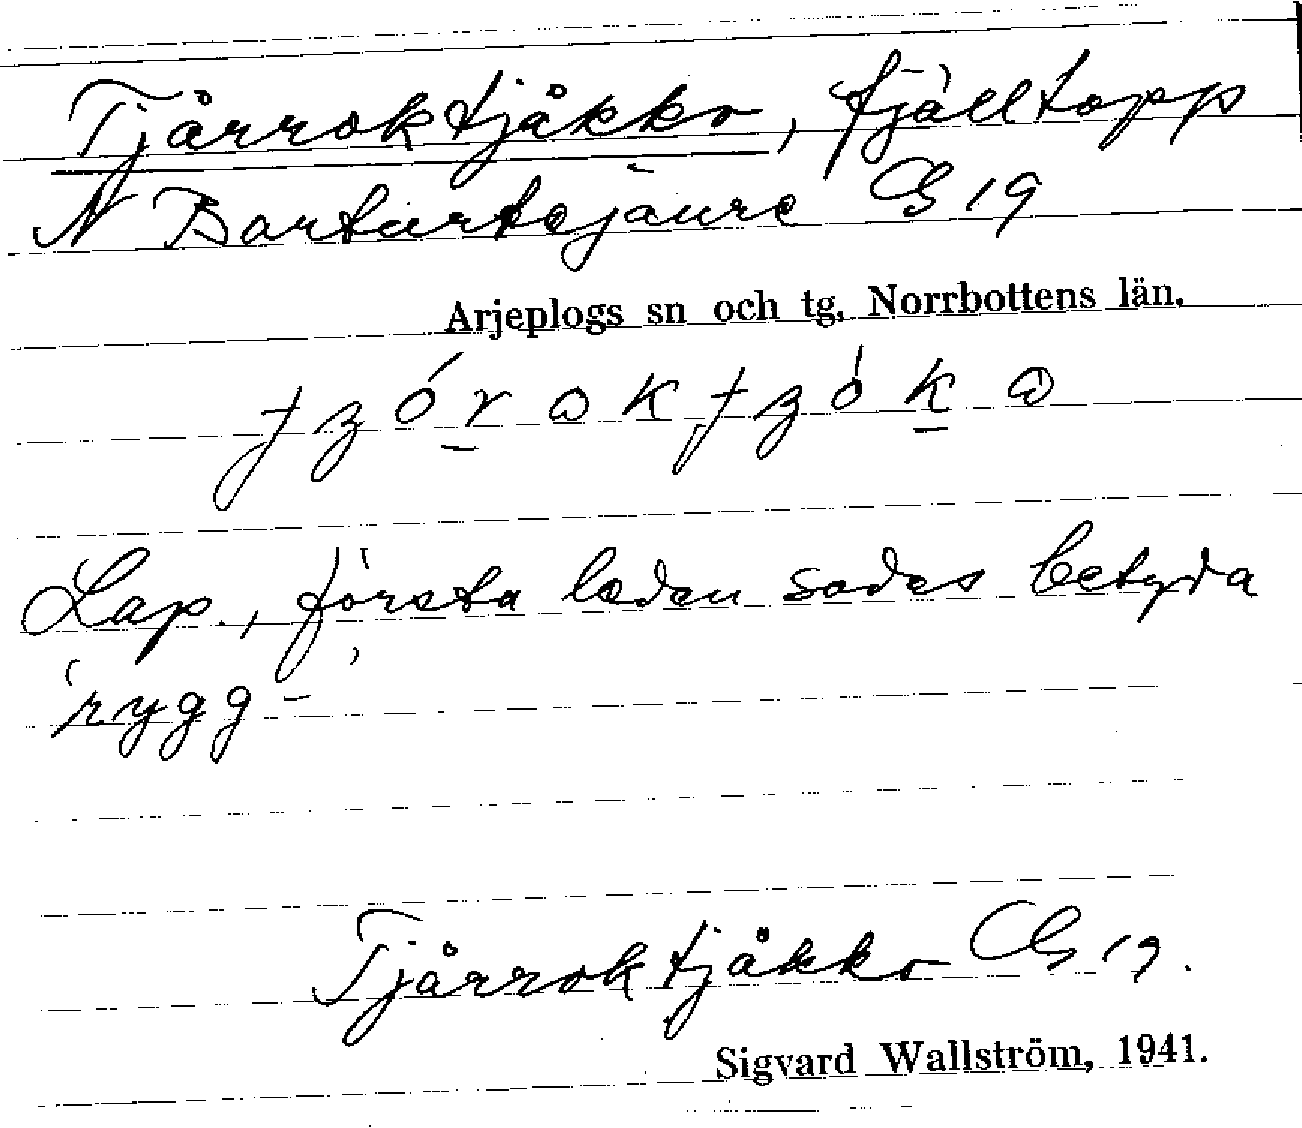 Tjårroktjåkko, fjälltopp
N Bartaurtejaure G 19
Arjeplogs sn och tg, Norrbottens län.
Lap., första leden sades betyda
'rygg-'
Tjårroktjåkko G 19.
Sigvard Wallström, 1941.